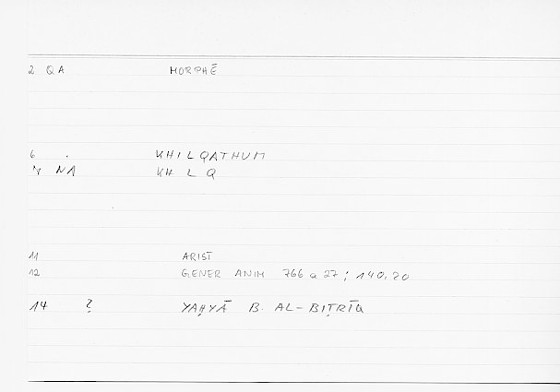 2 QA MORPHĒ
6 . KHILQATHUM
NA KH L Q
11 ARIST
12 GENER ANIM 766 a 27; 140.20
14 ? YAḤYĀ B. AL-BIṬRĪQ